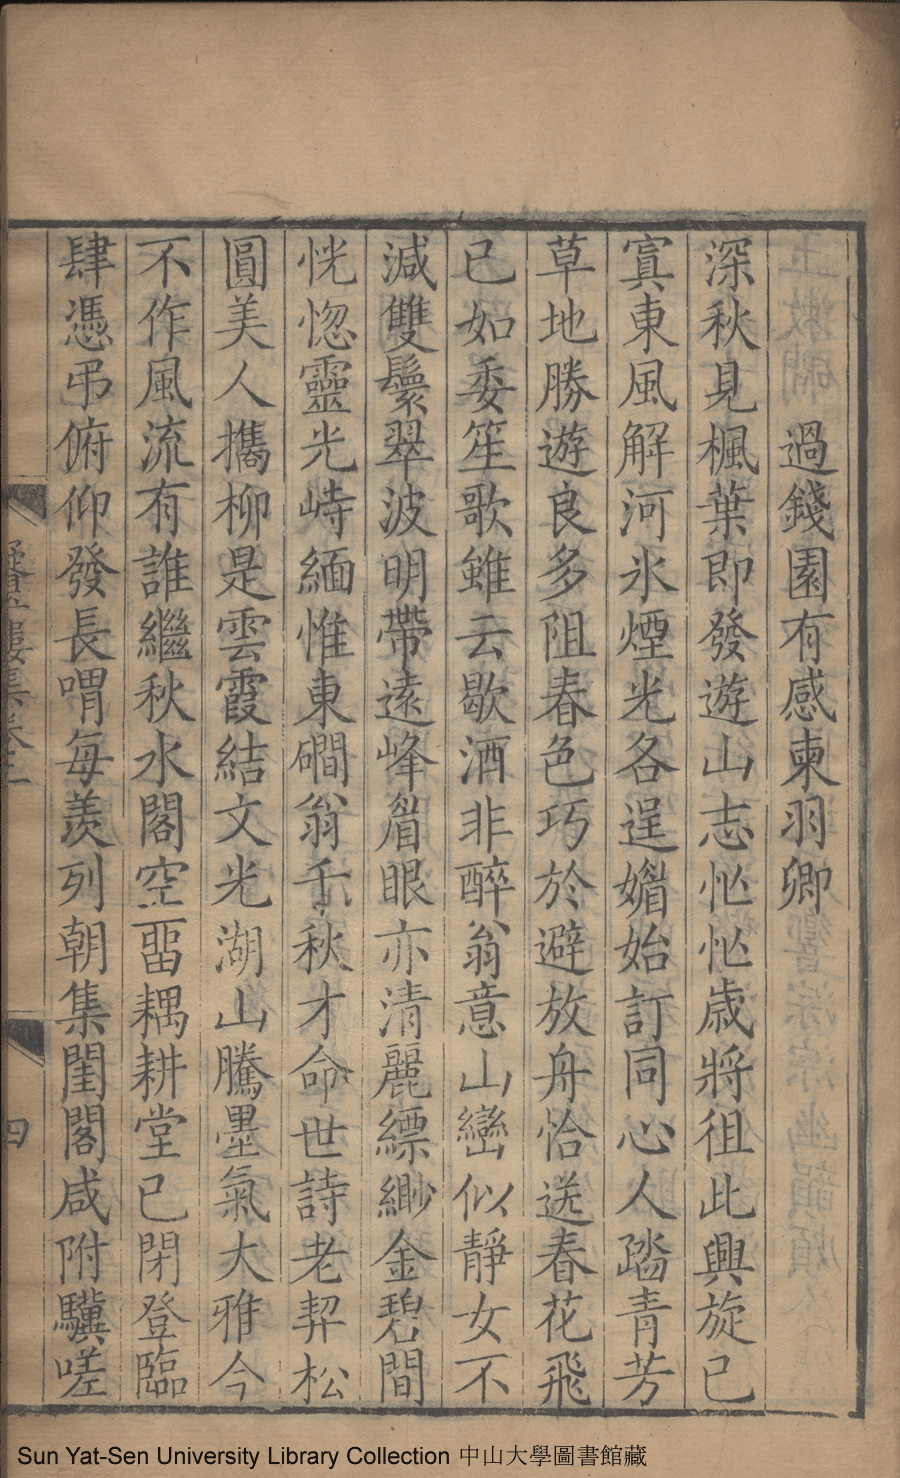 過錢園有感柬羽卿
深秋見楓葉即發遊山志忙忙歲將徂此興旋已
寘東風解河氷煙光各逞媚始訂同心人踏青芳
草地勝遊良多阻春色巧於避放舟恰送春花飛
已如委笙歌雖云歇酒非醉翁意山巒似靜女不
減雙鬟翠波明帶遠峰眉眼亦清麗縹緲金碧間
恍惚靈光峙緬惟東磵翁千秋才命世詩老契松
圓美人攜柳是雲霞結文光湖山騰墨氣大雅今
不作風流有誰繼秋水閣空畱耦耕堂已閉登臨
肆憑弔俯仰發長喟每羨列朝集閨閣咸附驥嗟
四
Sun Yat-Sen University Library Collection 中山大學圖書館藏